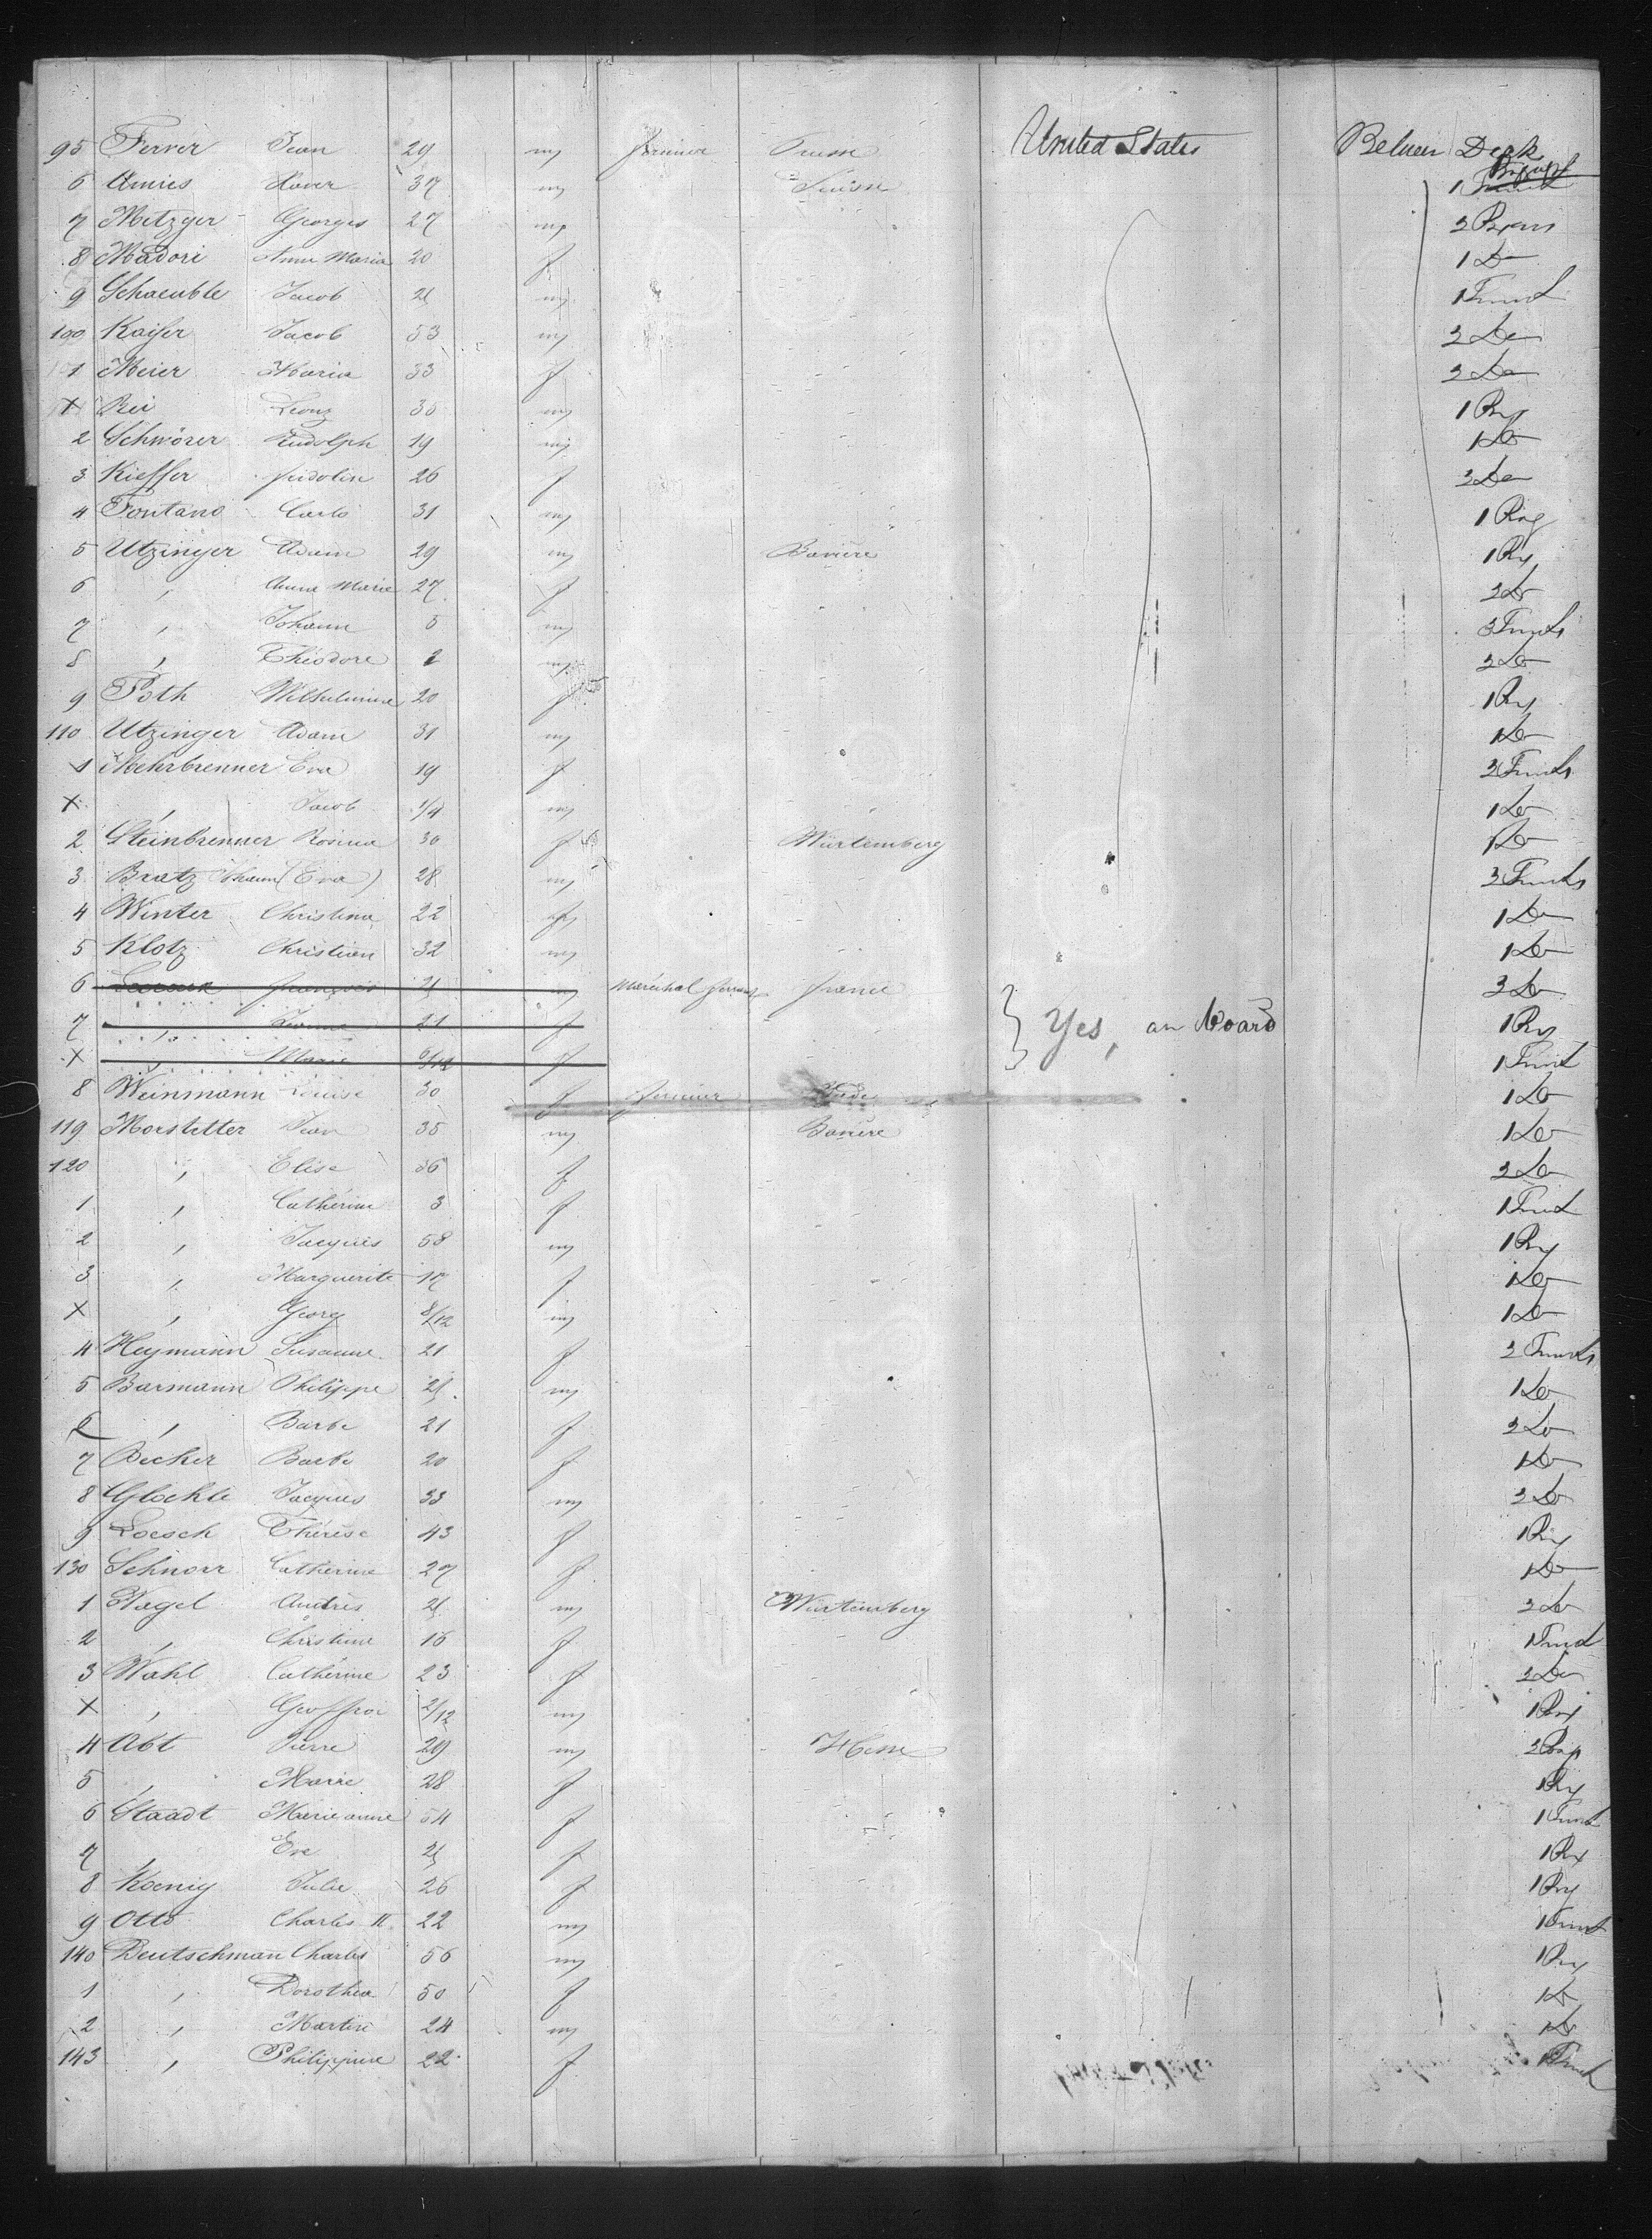 95 Ferrer Jean 29 m fermier Prusse United States Between Deck
6 Amies Xaver 37 m Suisse 1
7 Metzger Georges 27 m 2
8 Madori Anna Maria 20 f 1 Do
9 Schaeuble Jacob 21 m 1 Trunk
100 Kaiser Jacob 53 m 2 Do
1 Meier Maria 33 f 2 Do
X Rei Leonz 35 m 1
2 Schwörer Rudolph 19 m 1 Do
3 Kieffer fridolin 26 f 2 Do
4 Fontano Carlo 31 m 1
5 Utzinger Adam 29 m Baviere 1
6 " Anna Marie 27 f 2 Do
7 " Johann 5 m 3 Trunks
8 " Théodore 2 m 2 Do
9 Poth Wilhelmine 20 f 1
110 Utzinger Adam 31 m 1 Do
1 Mehrbrenner Eva 19 f 2 Trunks
X " Jacob 1/4 m 1 Do
2 Steinbrenner Rosina 30 f Würtemberg 1 Do
3 Bratz Johann (Eva) 28 m 3 Trunks
4 Winter Christina 22 f 1 Do
5 Klotz Christian 32 m 1 Do
6 françois 21 m Maréchal ferrant france 3 Do
7 " 21 f Yes, on board 1
X " Marie 6/12 f 1 Trunk
8 Weinmann Louise 30 f fermier Bade 1 Do
119 Morstetter Jean 35 m Baviere 1 Do
120 " Elise 36 f 2 Do
1 " Cathérine 3 f 1 Trunk
2 " Jacques 58 m 1
3 " Marguerite 17 f 1 Do
X " Georg 8/12 m 1 Do
4 Heymann Susanne 21 f 2 Trunks
5 Barmann Philippe 25 m 1 Do
6 " Barbe 21 f 2 Do
7 Becker Barbe 20 f 1 Do
8 Glöckle Jacques 33 m 2 Do
9 Loesch Thérèse 43 f 1
130 Schnorr Catherine 27 f 1 Do
1 Nagel Andrés 25 m Würtemberg 2 Do
2 " Christine 16 f 1 Trunk
3 Wahl Cathérine 23 f 2 Do
X " Geoffroi 2/12 m 1
4 Abt Pierre 29 m Hesse 2
5 " Marie 28 f 1
6 Staadt Marie anne 54 f 1 Trunk
7 " Eva 25 f 1
8 Koenig Julie 26 f 1
9 Otto Charles H. 22 m 1 Trunk
140 Deutschman Charles 56 m 1
1 " Dorothea 50 f 1 Do
2 " Martin 24 m 1 Do
143 " Philippine 22 f Trunk